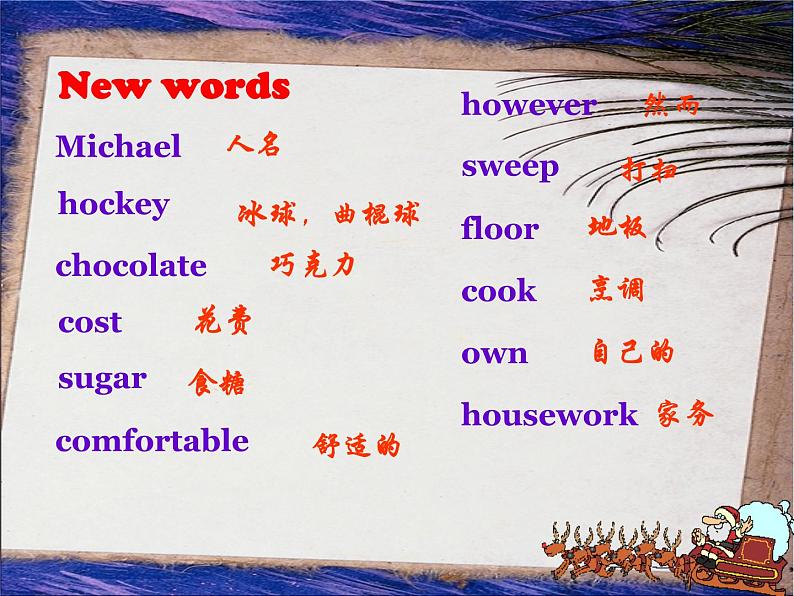 New words
Michael 人名
hockey 冰球，曲棍球
chocolate 巧克力
cost 花费
sugar 食糖
comfortable 舒适的
however 然而
sweep 打扫
floor 地板
cook 烹调
own 自己的
housework 家务